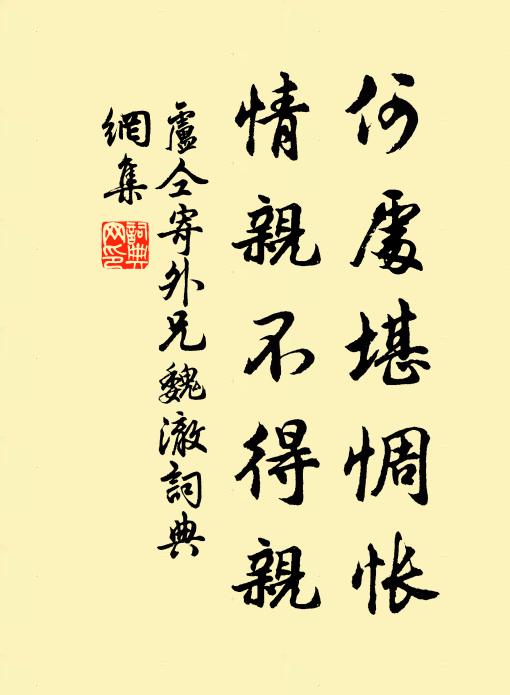 何處堪惆悵
情親不得親
盧仝寄外兄魏澈詞典
網集
詞典
网印